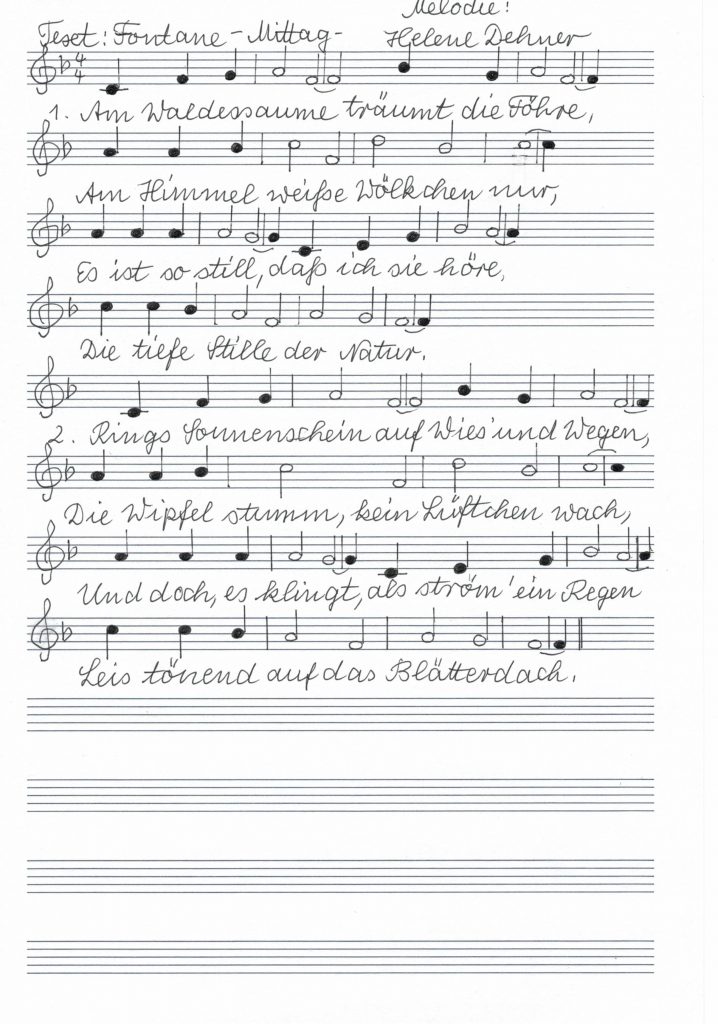 Melodie:
Teset: Fontane - Mittag -
Helene Dehner
4
4
1. Am Waldessaume träumt die Föhre,
Am Himmel weiße Wölkchen nur,
Es ist so still, daß ich sie höre,
Die tiefe Stille der Natur.
2. Rings Sonnenschein auf Wies' und Wegen,
Die Wipfel stumm, kein Lüftchen wach,
Und doch, es klingt, als ström' ein Regen
Leis tönend auf das Blätterdach.